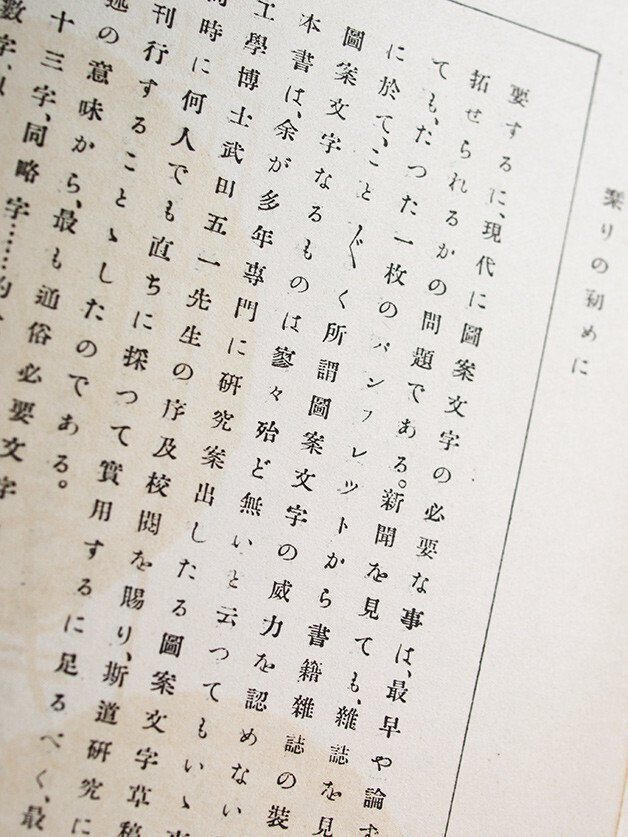 栞りの初めに
要するに、現代に圖案文字の必要な事は、最早や論ず
拓せられるかの問題である。新聞を見ても、雜誌を見
ても、たつた一枚のパンフレツトから書籍雜誌の裝
に於て、こと〲く所謂圖案文字の威力を認めない
圖案文字なるものは寥々殆ど無いと云つてもいゝ
本書は、余が多年專門に研究案出したる圖案文字草稿
工學博士武田五一先生の序及校閲を賜り、斯道研究に
時に何人でも直ちに採つて實用するに足るべく、最
刊行することゝしたのである。
の意味から、最も通俗必要文字
十三字、同略字……
數字、